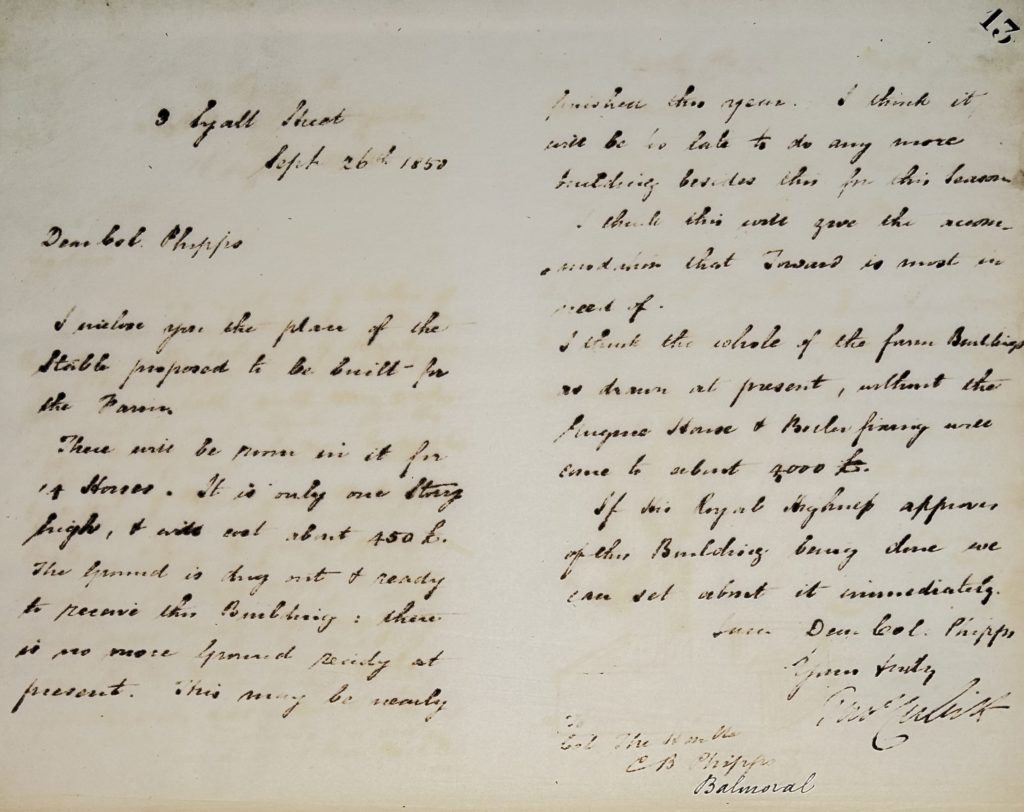 13
3 Lyall Street
Sept 26th 1850
Dear Col. Phipps
I inclose you the plan of the
Stable proposed to be built for
the Farm
There will be room in it for
14 Horses. It is only one Story
high, & will cost about 450 £.
The Ground is dug out & ready
to receive this Building: there
is no more Ground ready at
present. This may be nearly
finished this year. I think it
will be to late to do any more
building besides this for this Season
I think this will give the accom-
modation that Toward is most in
need of.
I think the whole of the farm Buildings
as drawn at present, without the
Engine House & Boiler fixing will
come to about 4000 £.
If His Royal Highness approves
of this Building being done we
can set about it immediately.
I am Dear Col. Phipps
Yours truly
Thos Cubitt
To
Col The Honble
C B Phipps
Balmoral